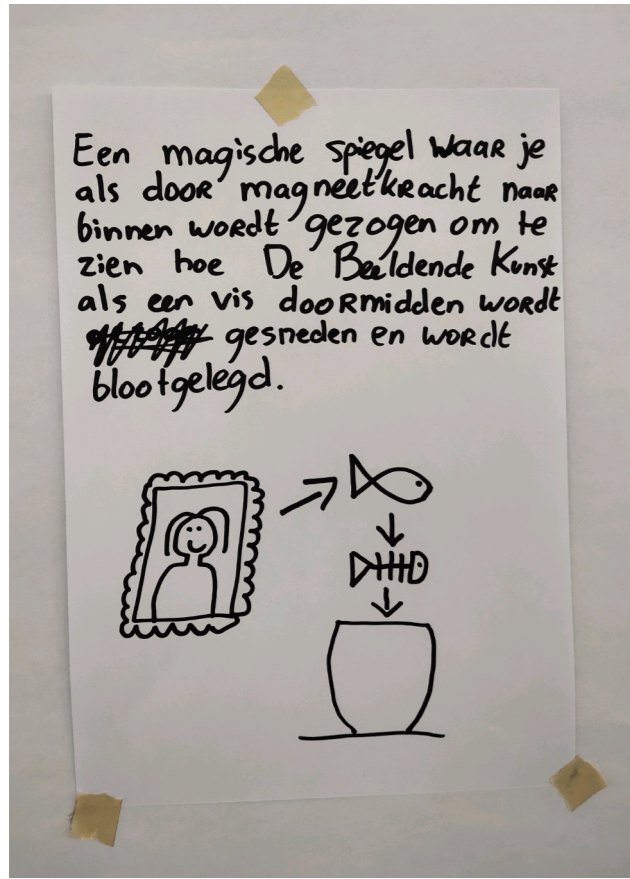 Een magische spiegel waar je
als door magneetkracht naar
binnen wordt gezogen om te
zien hoe De Beeldende Kunst
als een vis doormidden wordt
gesneden en wordt
blootgelegd.